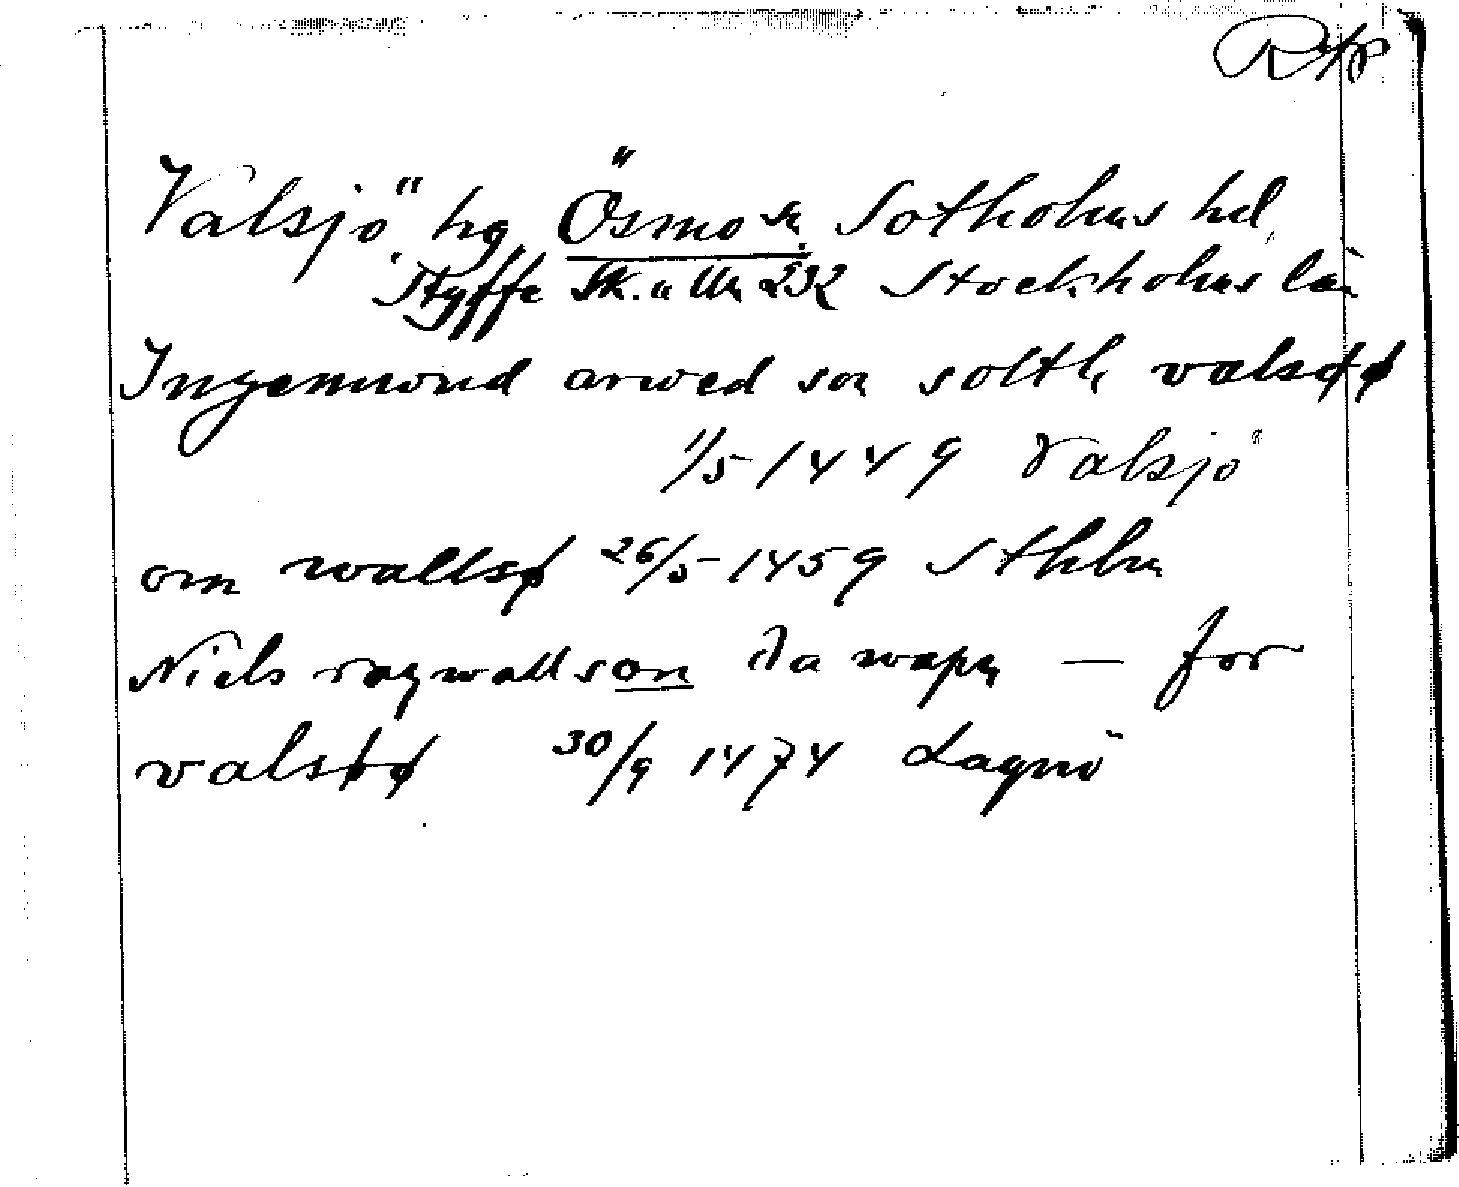 Valsjö hg. Ösmo sn Sotholms hd
Styffe Sk. u Un 232 Stockholms län
Ingemund arwed son solth valsøø
1/5 1449 Valsjö
om wallsø 26/5 1459 Sthlm
Niels ragwaldson wapn — for
valsøø 30/9 1474 Lagnö